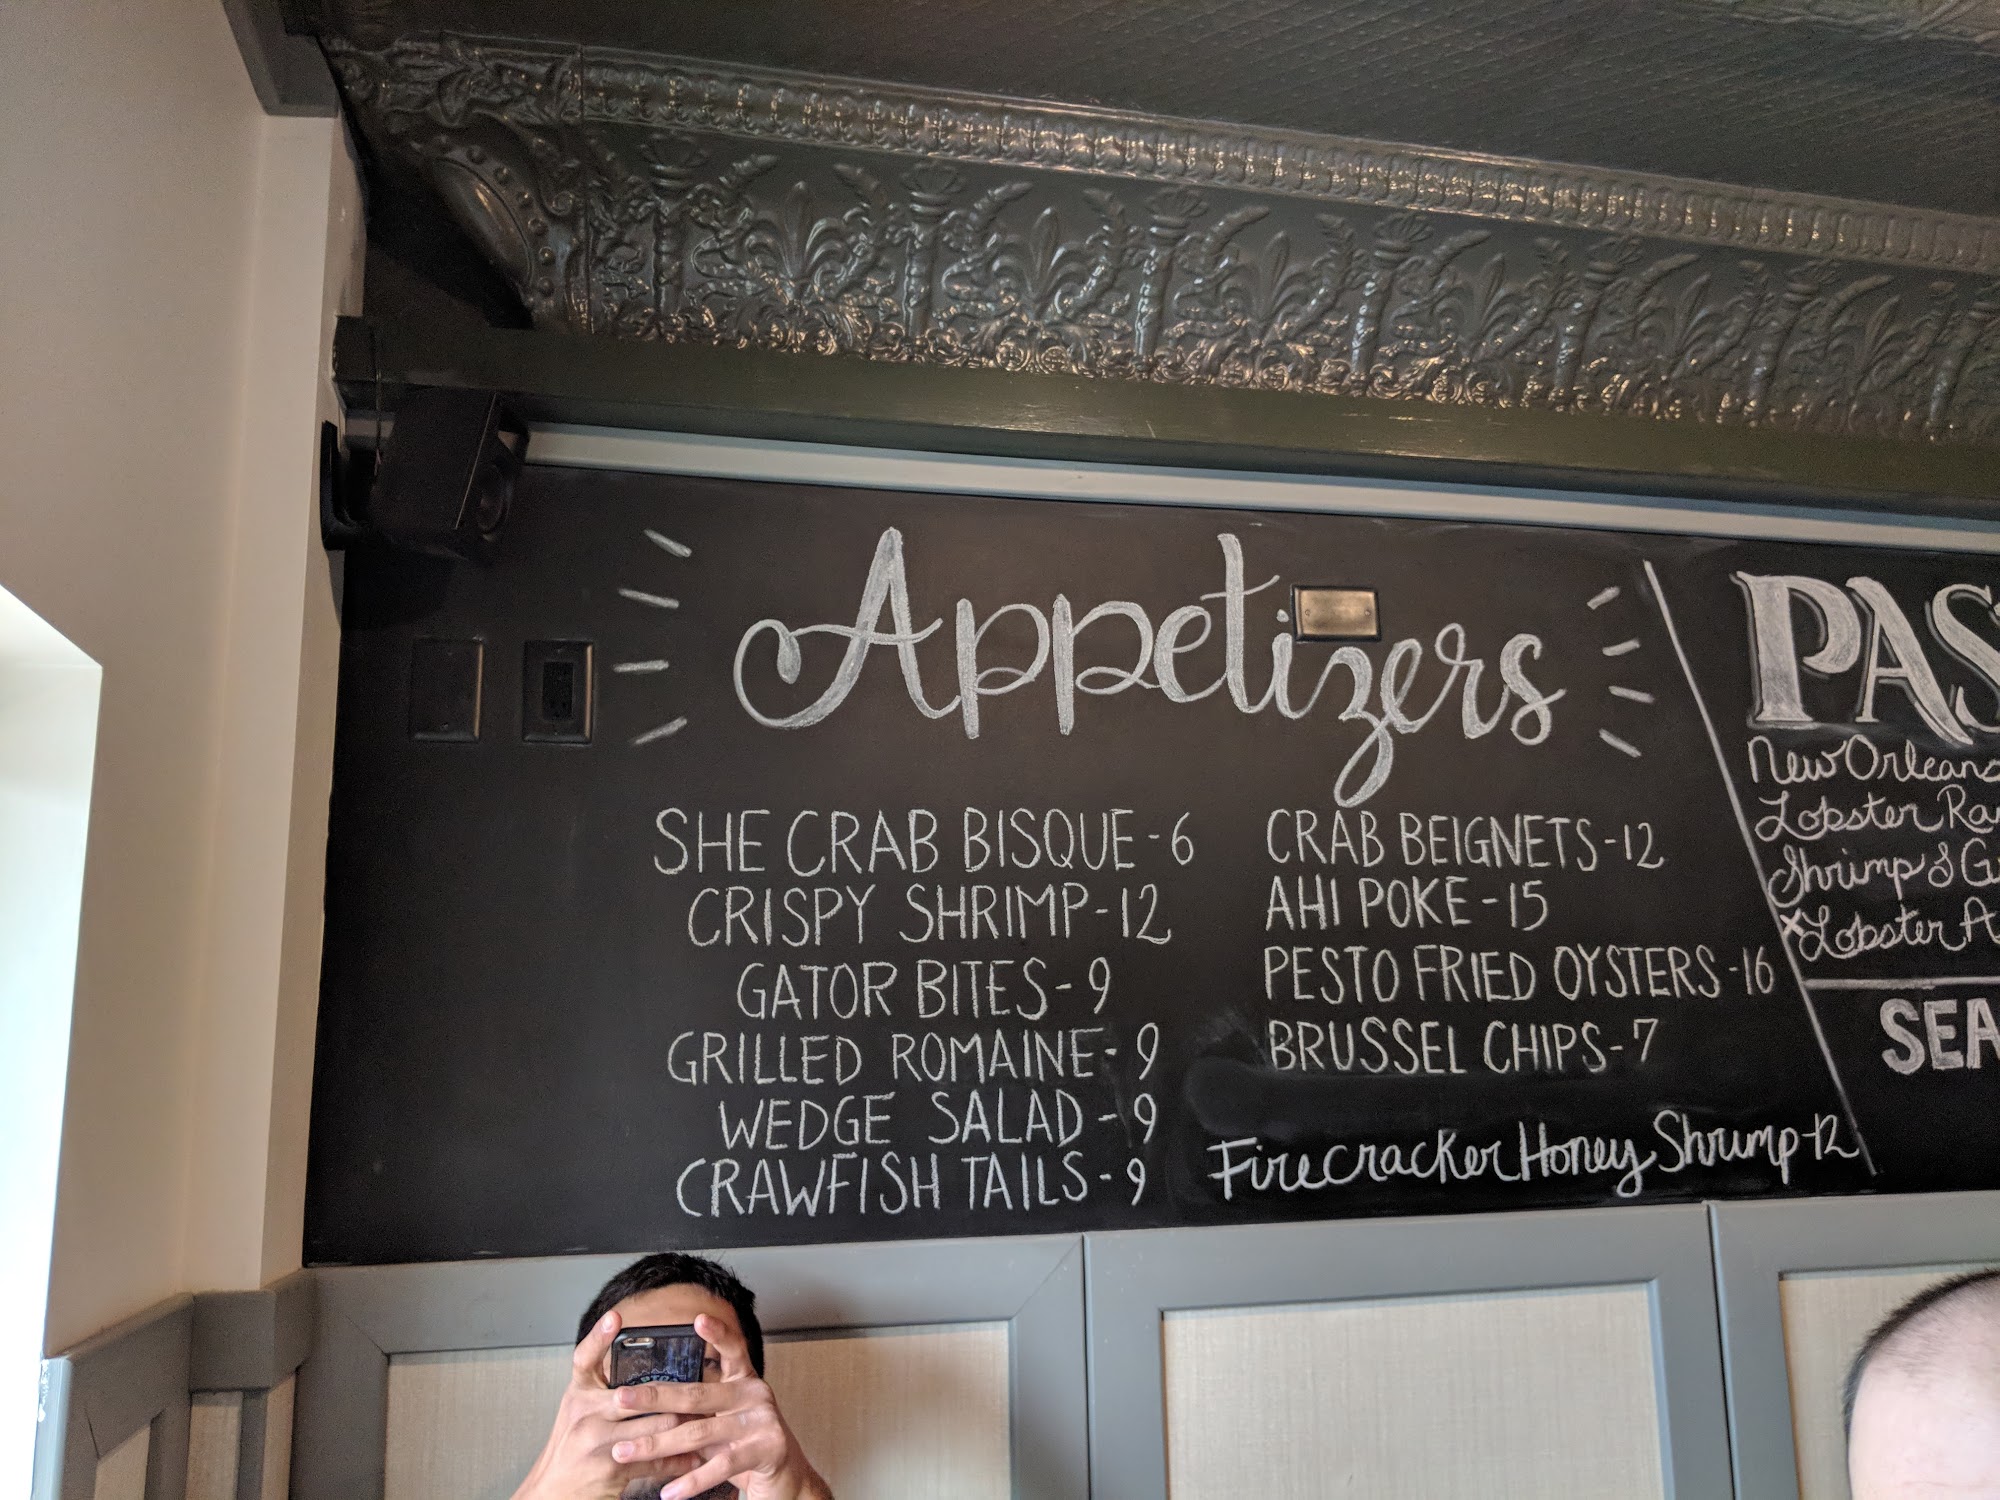 Appetizers
SHE CRAB BISQUE - 6
CRISPY SHRIMP - 12
GATOR BITES - 9
GRILLED ROMAINE - 9
WEDGE SALAD - 9
CRAWFISH TAILS - 9
CRAB BEIGNETS - 12
AHI POKE - 15
PESTO FRIED OYSTERS - 16
BRUSSEL CHIPS - 7
Firecracker Honey Shrimp - 12
PAS
New Orleans
Lobster Ra
Shrimp & G
x Lobster A
SEA